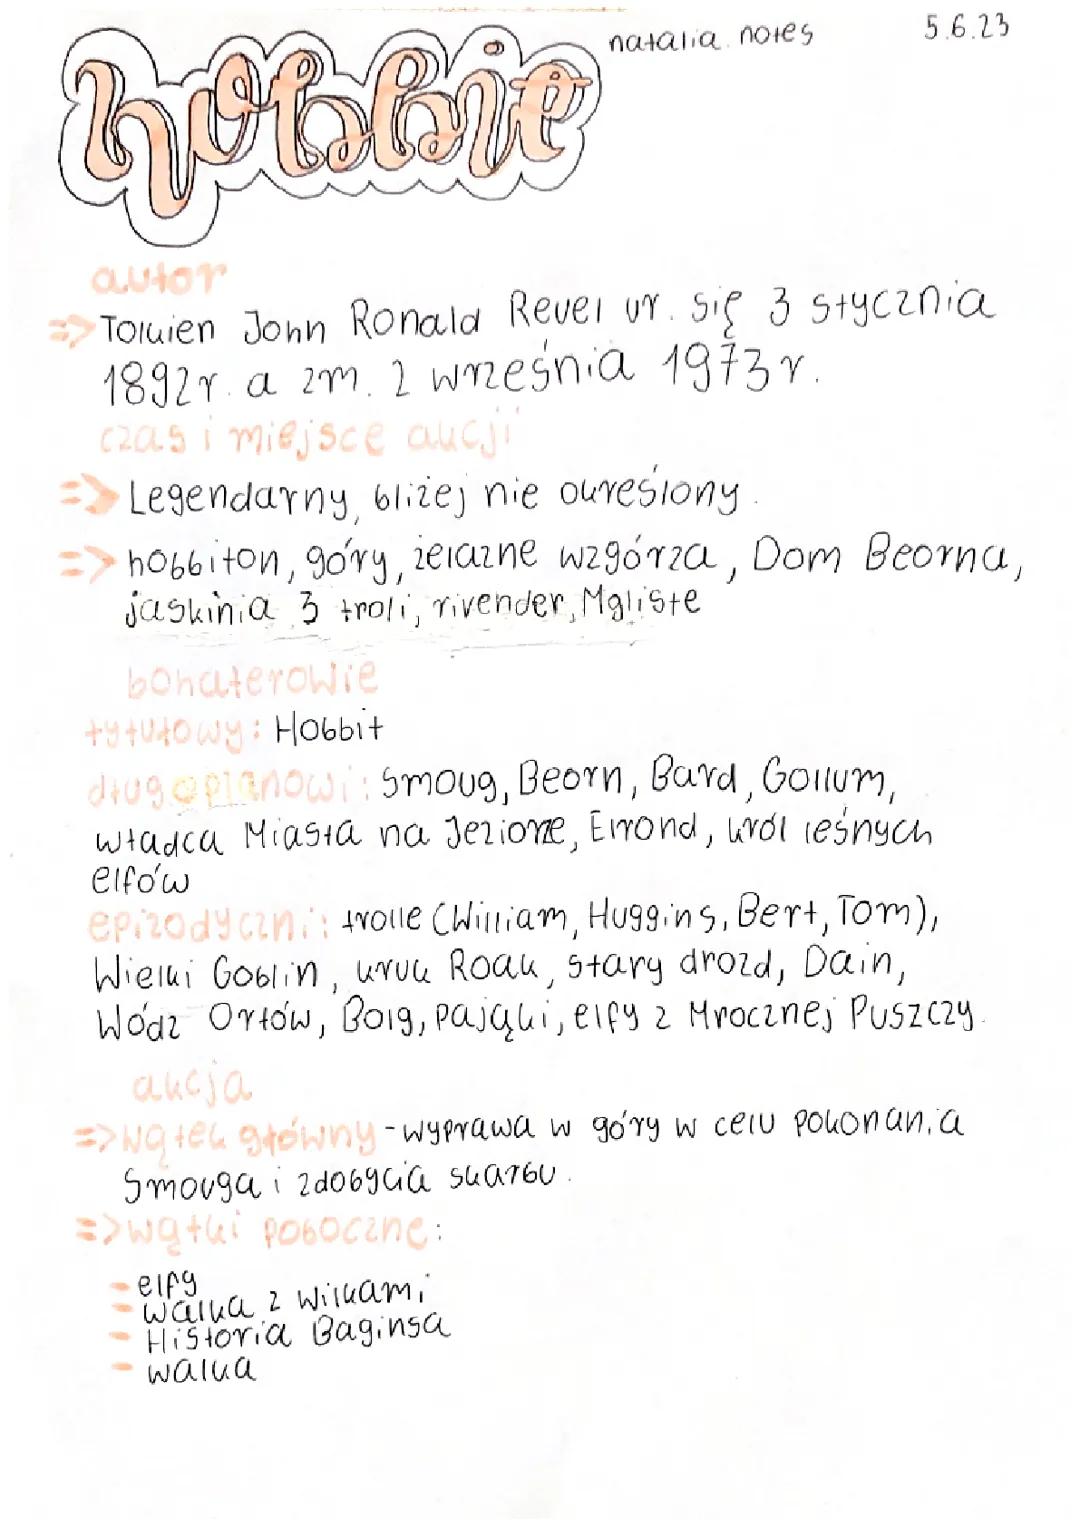 natalia.notes 5.6.23
hobbit
autor
=> Tolkien John Ronald Reuel ur. się 3 stycznia
1892r. a zm. 2 września 1973r.
czas i miejsce akcji
=> Legendarny, bliżej nie określony.
=> hobbiton, góry, żelazne wzgórza, Dom Beorna,
jaskinia 3 troli, rivender, Mgliste
bohaterowie
tytułowy: Hobbit
drugoplanowi: Smoug, Beorn, Bard, Gollum,
władca Miasta na Jeziorze, Elrond, król leśnych
elfów
epizodyczni: trolle (William, Huggins, Bert, Tom),
Wielki Goblin, kruk Roak, stary drozd, Dain,
Wódz Orłów, Bolg, pająki, elfy z Mrocznej Puszczy.
akcja
=> wątek główny - wyprawa w góry w celu pokonania
Smouga i zdobycia skarbu.
=> wątki poboczne:
- elfy
- walka z wilkami
- Historia Baginsa
- walka